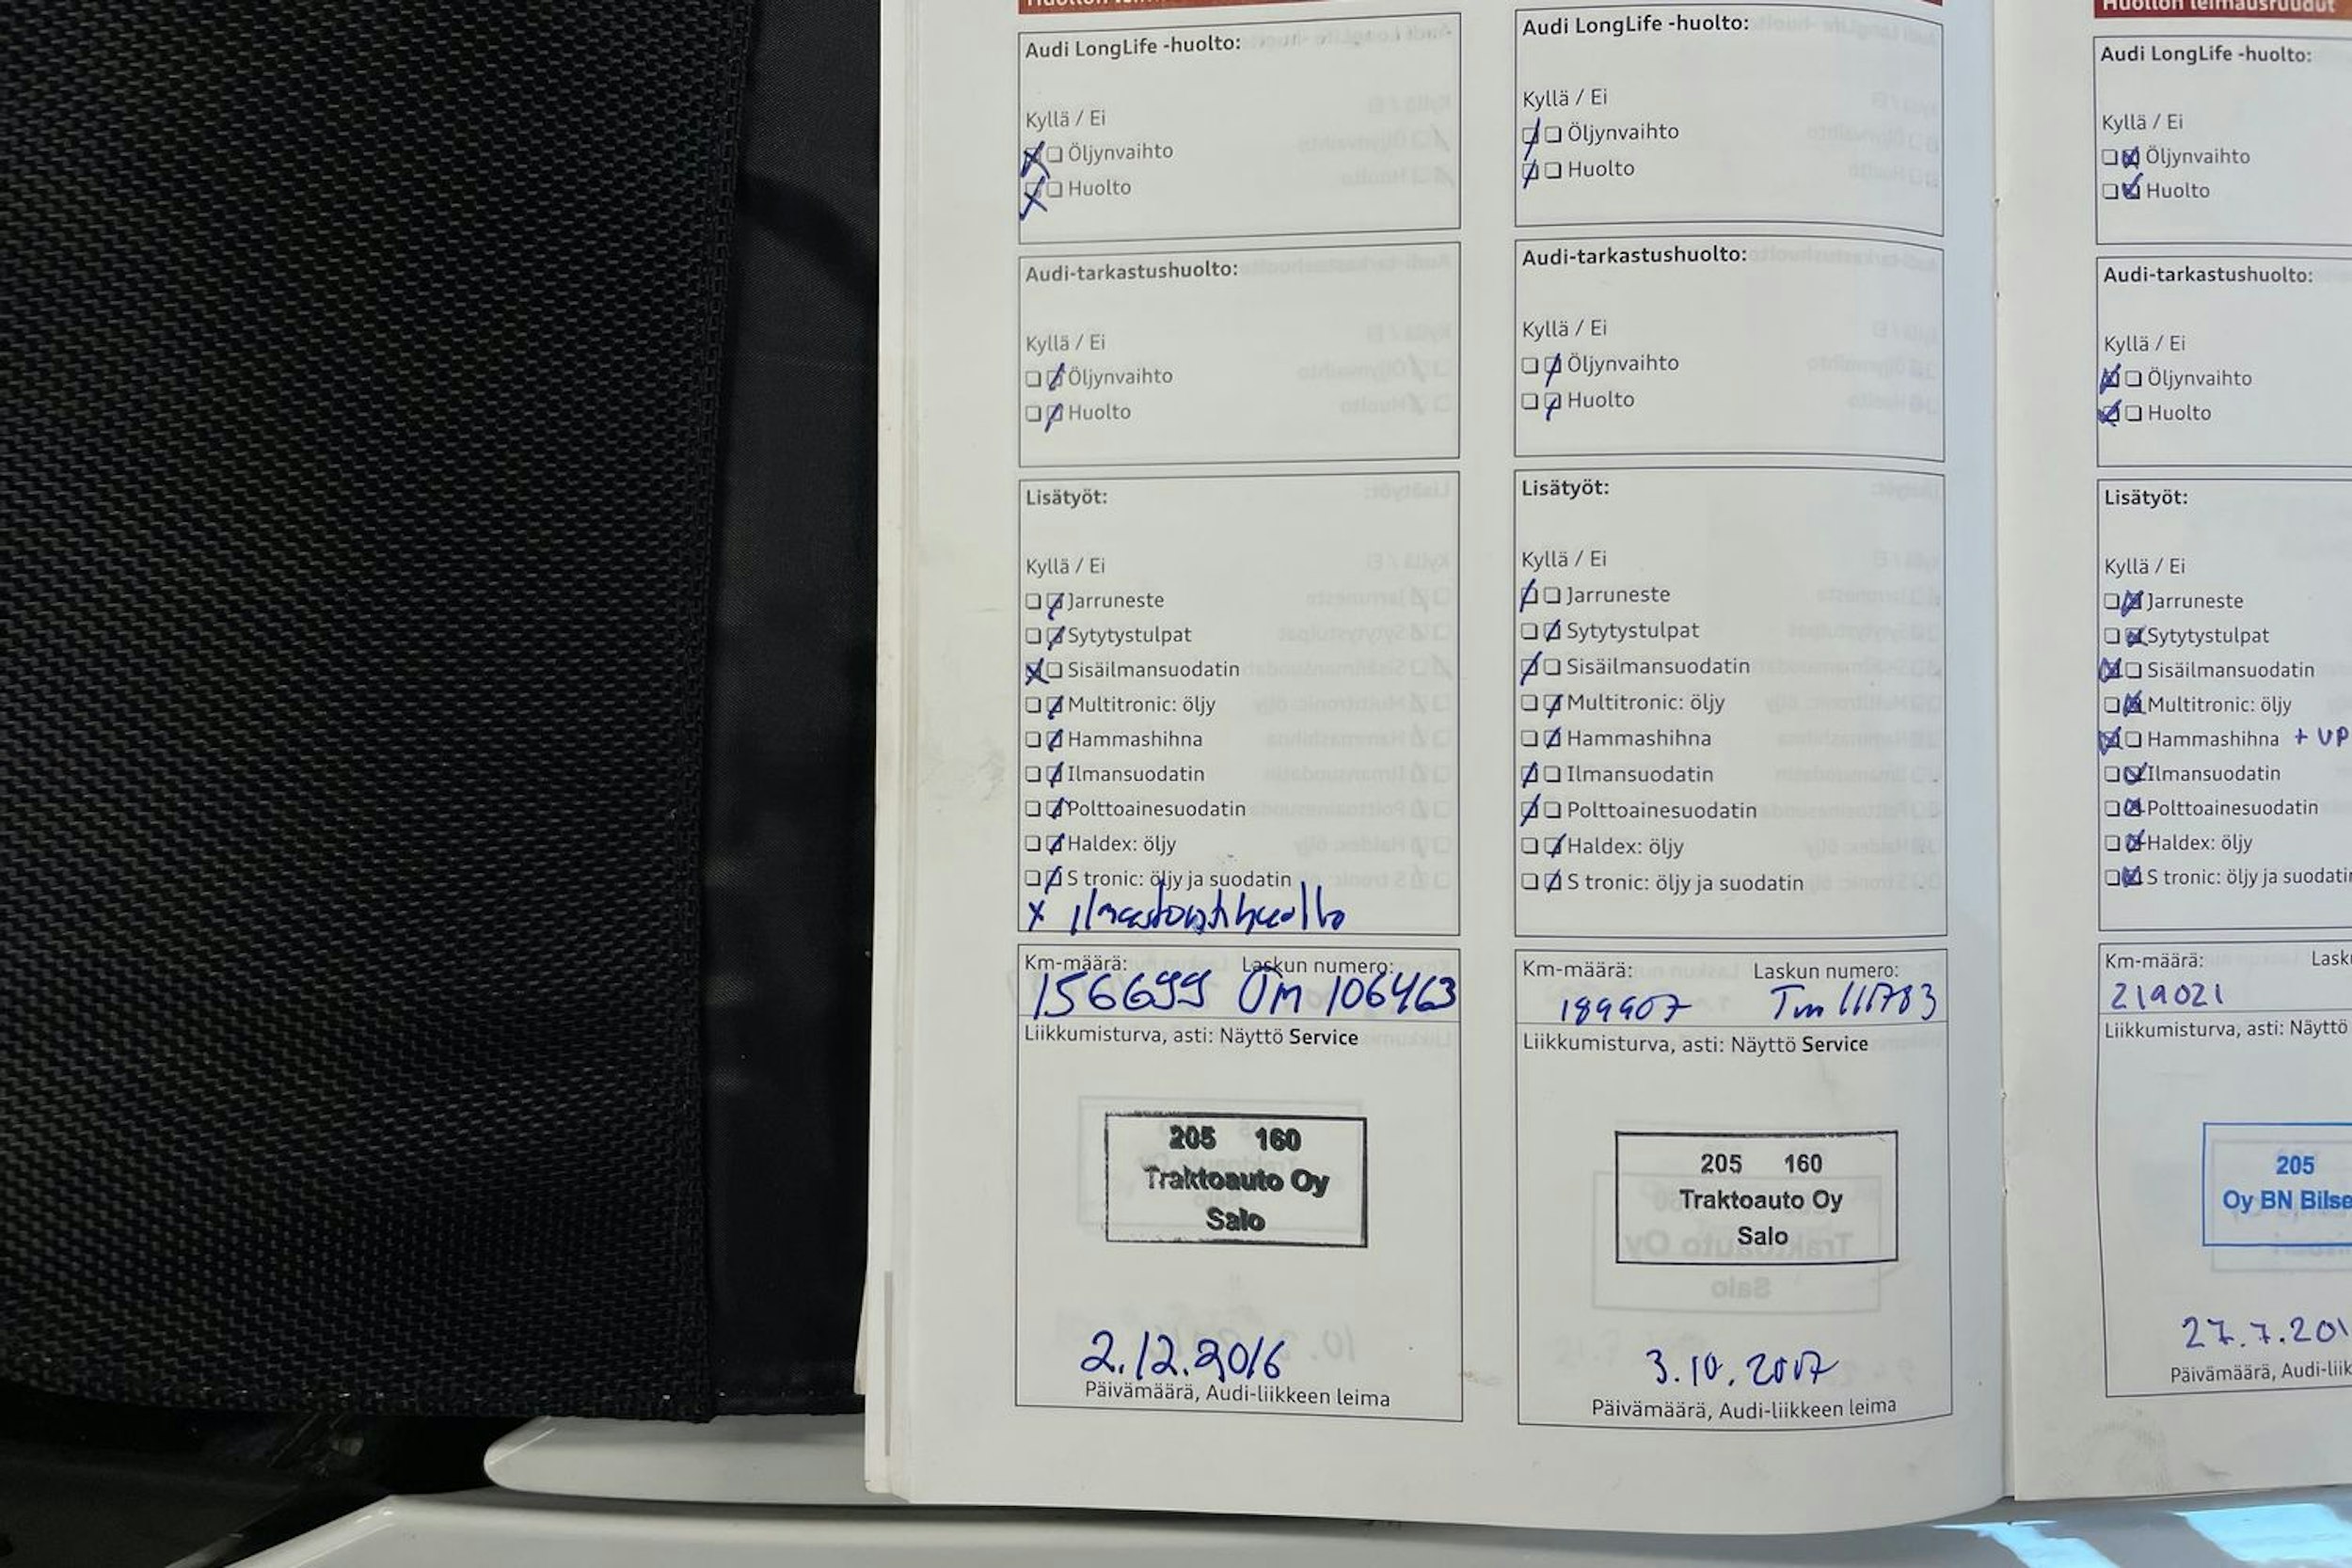 Audi LongLife -huolto:
Kyllä / Ei
Öljynvaihto
Huolto
Audi-tarkastushuolto:
Kyllä / Ei
Öljynvaihto
Huolto
Lisätyöt:
Kyllä / Ei
Jarruneste
Sytytystulpat
Sisäilmansuodatin
Multitronic: öljy
Hammashihna
Ilmansuodatin
Polttoainesuodatin
Haldex: öljy
S tronic: öljy ja suodatin
x Ilmastointihuolto
Km-määrä: Laskun numero:
156699 Om 106463
Liikkumisturva, asti: Näyttö Service
205 160
Traktoauto Oy
Salo
2.12.2016
Päivämäärä, Audi-liikkeen leima
Audi LongLife -huolto:
Kyllä / Ei
Öljynvaihto
Huolto
Audi-tarkastushuolto:
Kyllä / Ei
Öljynvaihto
Huolto
Lisätyöt:
Kyllä / Ei
Jarruneste
Sytytystulpat
Sisäilmansuodatin
Multitronic: öljy
Hammashihna
Ilmansuodatin
Polttoainesuodatin
Haldex: öljy
S tronic: öljy ja suodatin
Km-määrä: Laskun numero:
189907 Tm 111783
Liikkumisturva, asti: Näyttö Service
205 160
Traktoauto Oy
Salo
3.10.2017
Päivämäärä, Audi-liikkeen leima
Huollon leimausruudut
Audi LongLife -huolto:
Kyllä / Ei
Öljynvaihto
Huolto
Audi-tarkastushuolto:
Kyllä / Ei
Öljynvaihto
Huolto
Lisätyöt:
Kyllä / Ei
Jarruneste
Sytytystulpat
Sisäilmansuodatin
Multitronic: öljy
Hammashihna + VP
Ilmansuodatin
Polttoainesuodatin
Haldex: öljy
S tronic: öljy ja suodatin
Km-määrä: Lasku
219021
Liikkumisturva, asti: Näyttö
205
Oy BN Bilse
27.7.201
Päivämäärä, Audi-liik